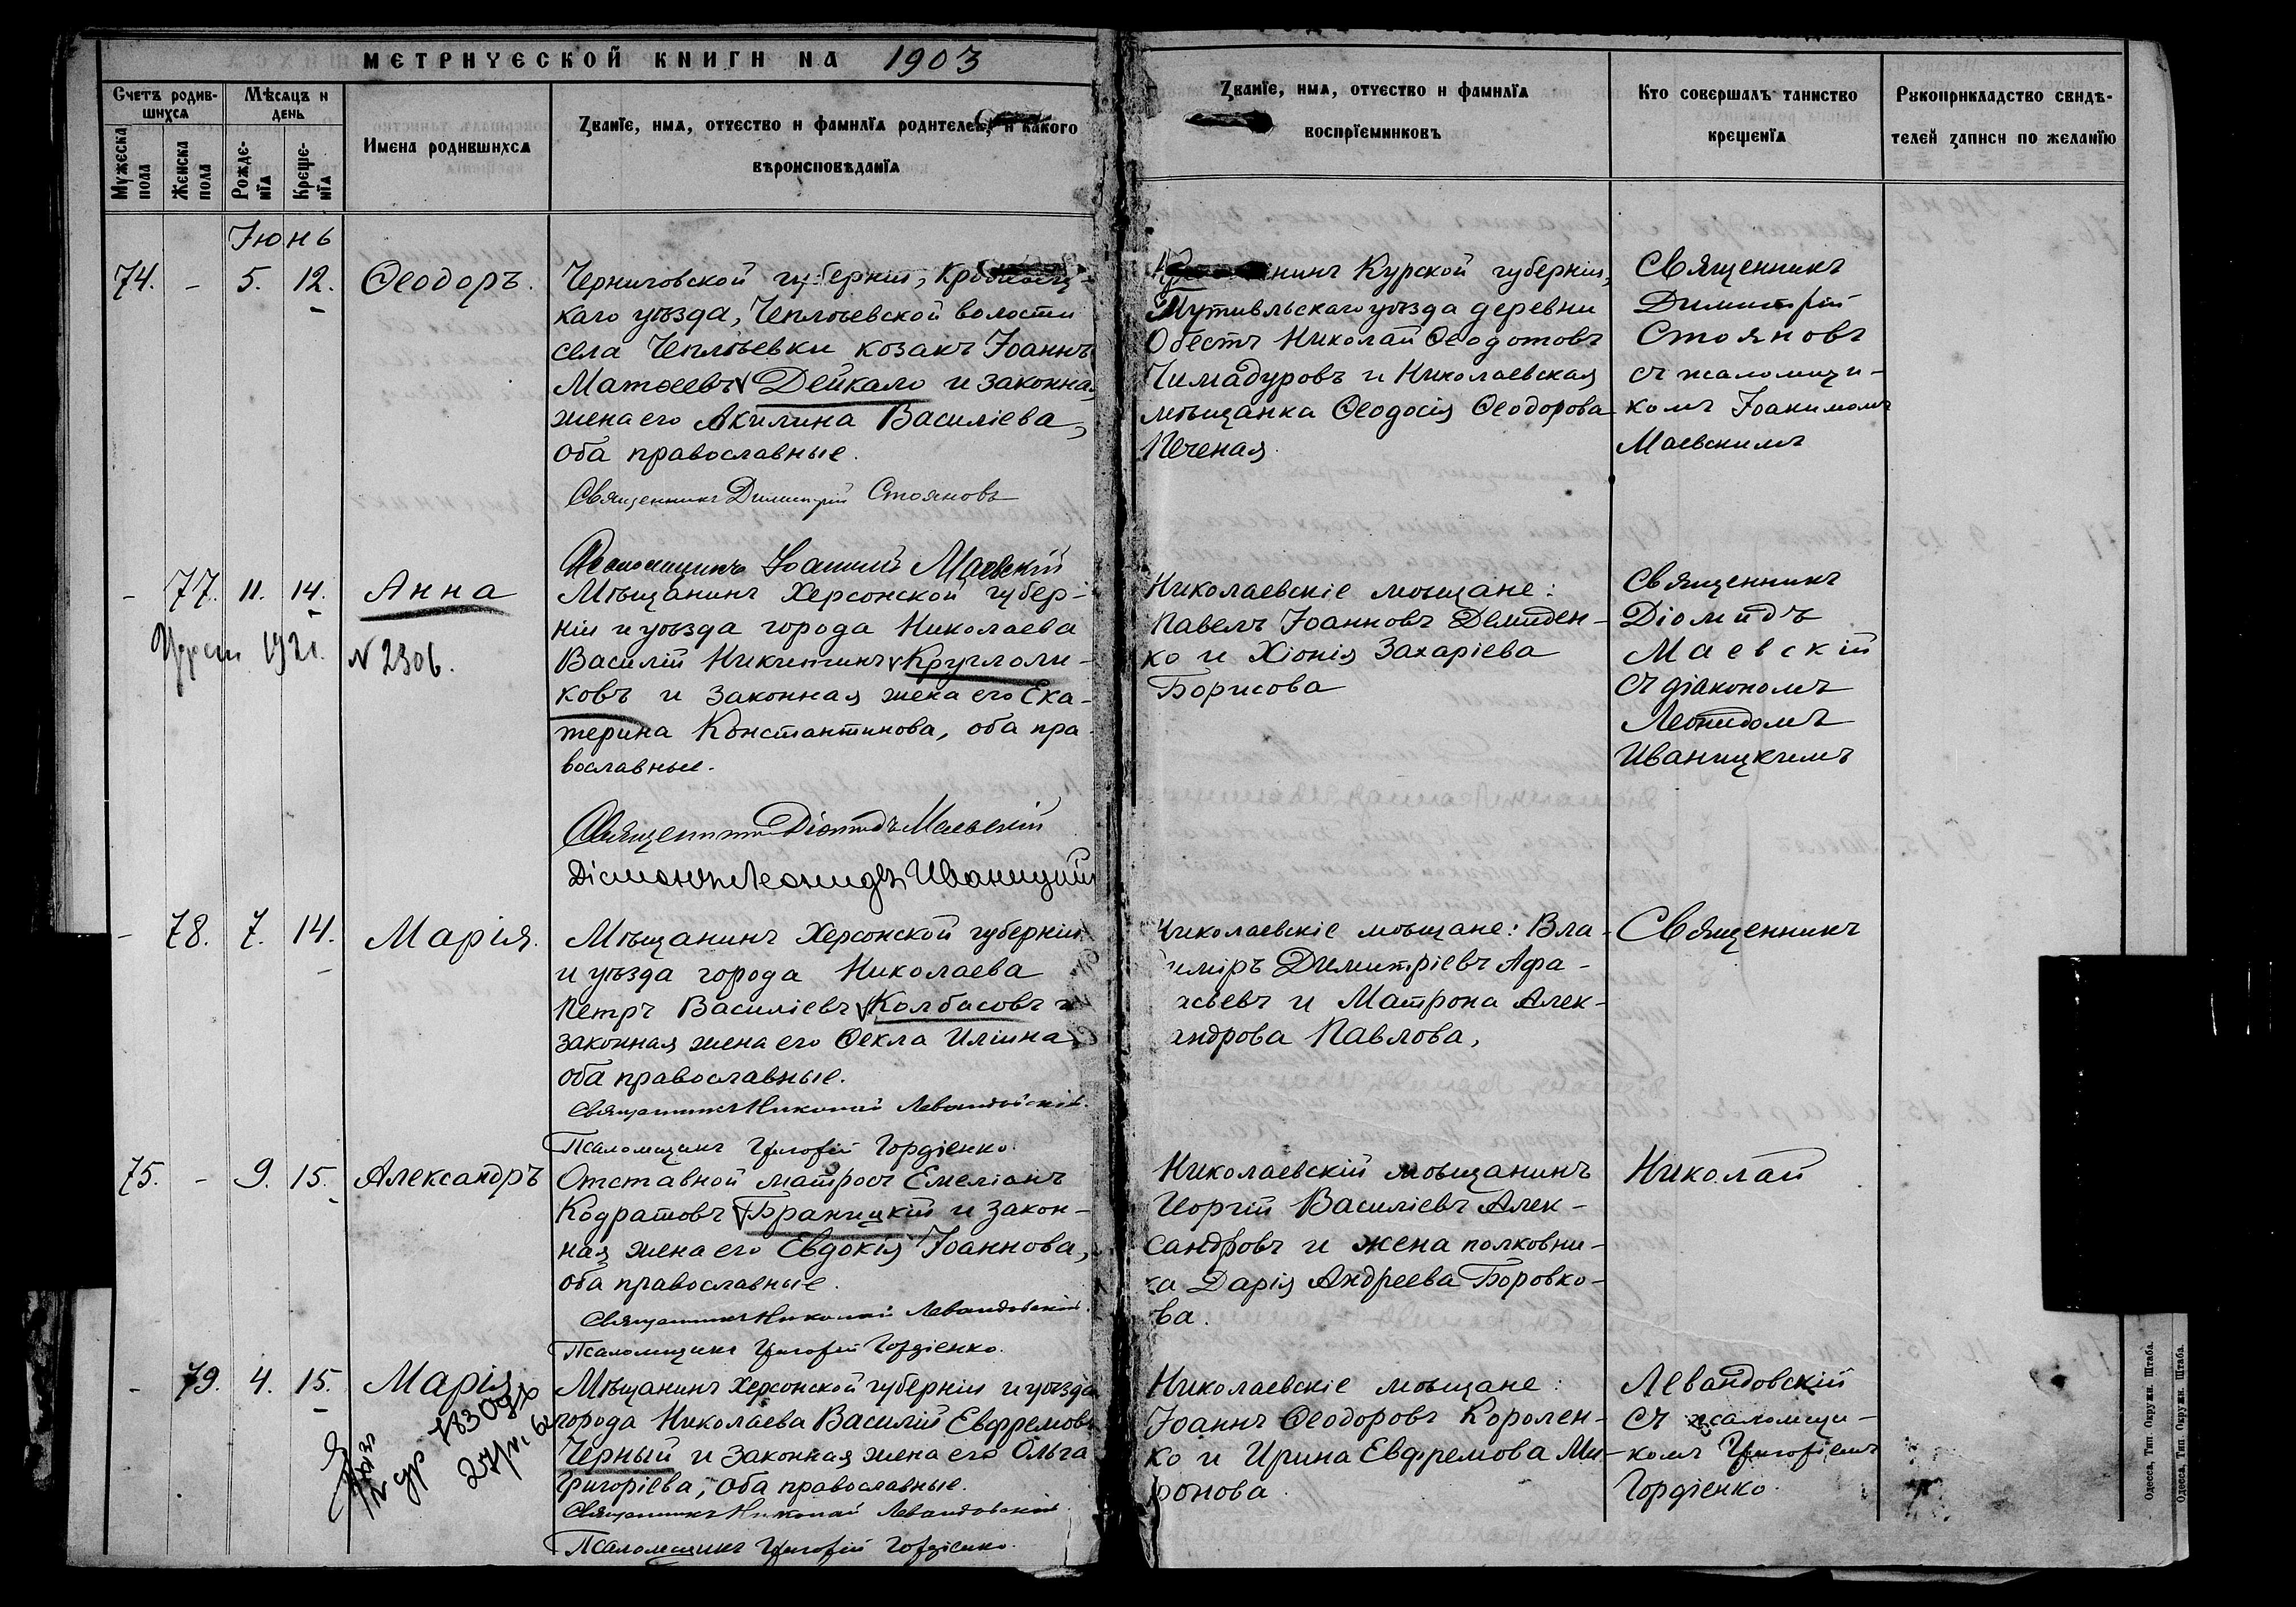 МЕТРИЧЕСКОЙ КНИГИ НА 1903
Счетъ родив-
шихся
Мѣсяцъ и
день
Мужеска
пола
Женска
пола
Рожде-
нія
Креще-
нія
Имена родившихся
Званіе, имя, отчество и фамилія родителей, и какого
вѣроисповѣданія
Званіе, имя, отчество и фамилія
воспріемниковъ
Кто совершалъ таинство
крещенія
Рукоприкладство свидѣ-
телей записи по желанію
Іюнь
74. - 5. 12. Ѳеодоръ.
Черниговской губерніи,
каго уѣзда, Чеплѣевской волости
села Чеплѣевки козакъ Іоаннъ
Матѳеевъ Дейкало и законная
жена его Акилина Василіева,
оба православные.
Священникъ Димитрій Стояновъ
Псаломщикъ Іоакимъ Маевскій
нинъ Курской губерніи,
Путивльскаго уѣзда деревни
Обестъ Николай Ѳеодотовъ
Чимадуровъ и Николаевская
мѣщанка Ѳеодосія Ѳеодорова
Печеная
Священникъ
Димитрій
Стояновъ
съ псаломщи-
комъ Іоакимомъ
Маевскимъ
- 77. 11. 14. Анна
1921. N 2306.
Мѣщанинъ Херсонской губер-
ніи и уѣзда города Николаева
Василій Никитинъ Круглоли-
ковъ и законная жена его Ека-
терина Константинова, оба пра-
вославные.
Священникъ Діомидъ Маевскій
Діаконъ Леонидъ Иваницкій
Николаевскіе мѣщане:
Павелъ Іоанновъ Демиден-
ко и Хіонія Захаріева
Борисова
Священникъ
Діомидъ
Маевскій
съ діакономъ
Леонидомъ
Иваницкимъ
- 78. 7. 14. Марія.
Мѣщанинъ Херсонской губерніи
и уѣзда города Николаева
Петръ Василіевъ Колбасовъ и
законная жена его Ѳекла Иліина
оба православные.
Священникъ Николай Левандовскій.
Псаломщикъ Григорій Гордіенко.
Николаевскіе мѣщане: Вла-
иміръ Димитріевъ Афа-
сьевъ и Матрона Алек-
андрова Павлова,
Священникъ
75. - 9. 15. Александръ
Отставной матросъ Емеліанъ
Кодратовъ Браницкій и закон-
ная жена его Евдокія Іоаннова,
оба православные.
Священникъ Николай Левандовскій.
Псаломщикъ Григорій Гордіенко.
Николаевскій мѣщанинъ
Георгій Василіевъ Алек-
сандровъ и жена полковни-
ка Дарія Андреева Боровко-
ва.
Николай
- 79. 4. 15. Марія
Мѣщанинъ Херсонской губерніи и уѣзда
города Николаева Василій Евфремовъ
Черный и законная жена его Ольга
Григоріева, оба православные.
Священникъ Николай Левандовскій.
Псаломщикъ Григорій Гордіенко.
Николаевскіе мѣщане:
Іоаннъ Ѳеодоровъ Королен-
ко и Ирина Евфремова Ми-
ронова
Левандовскій
съ псаломщи-
комъ Григоріемъ
Гордіенко.
Одесса, Тип. Окружн. Штаба.
Одесса, Тип. Окружн. Штаба.